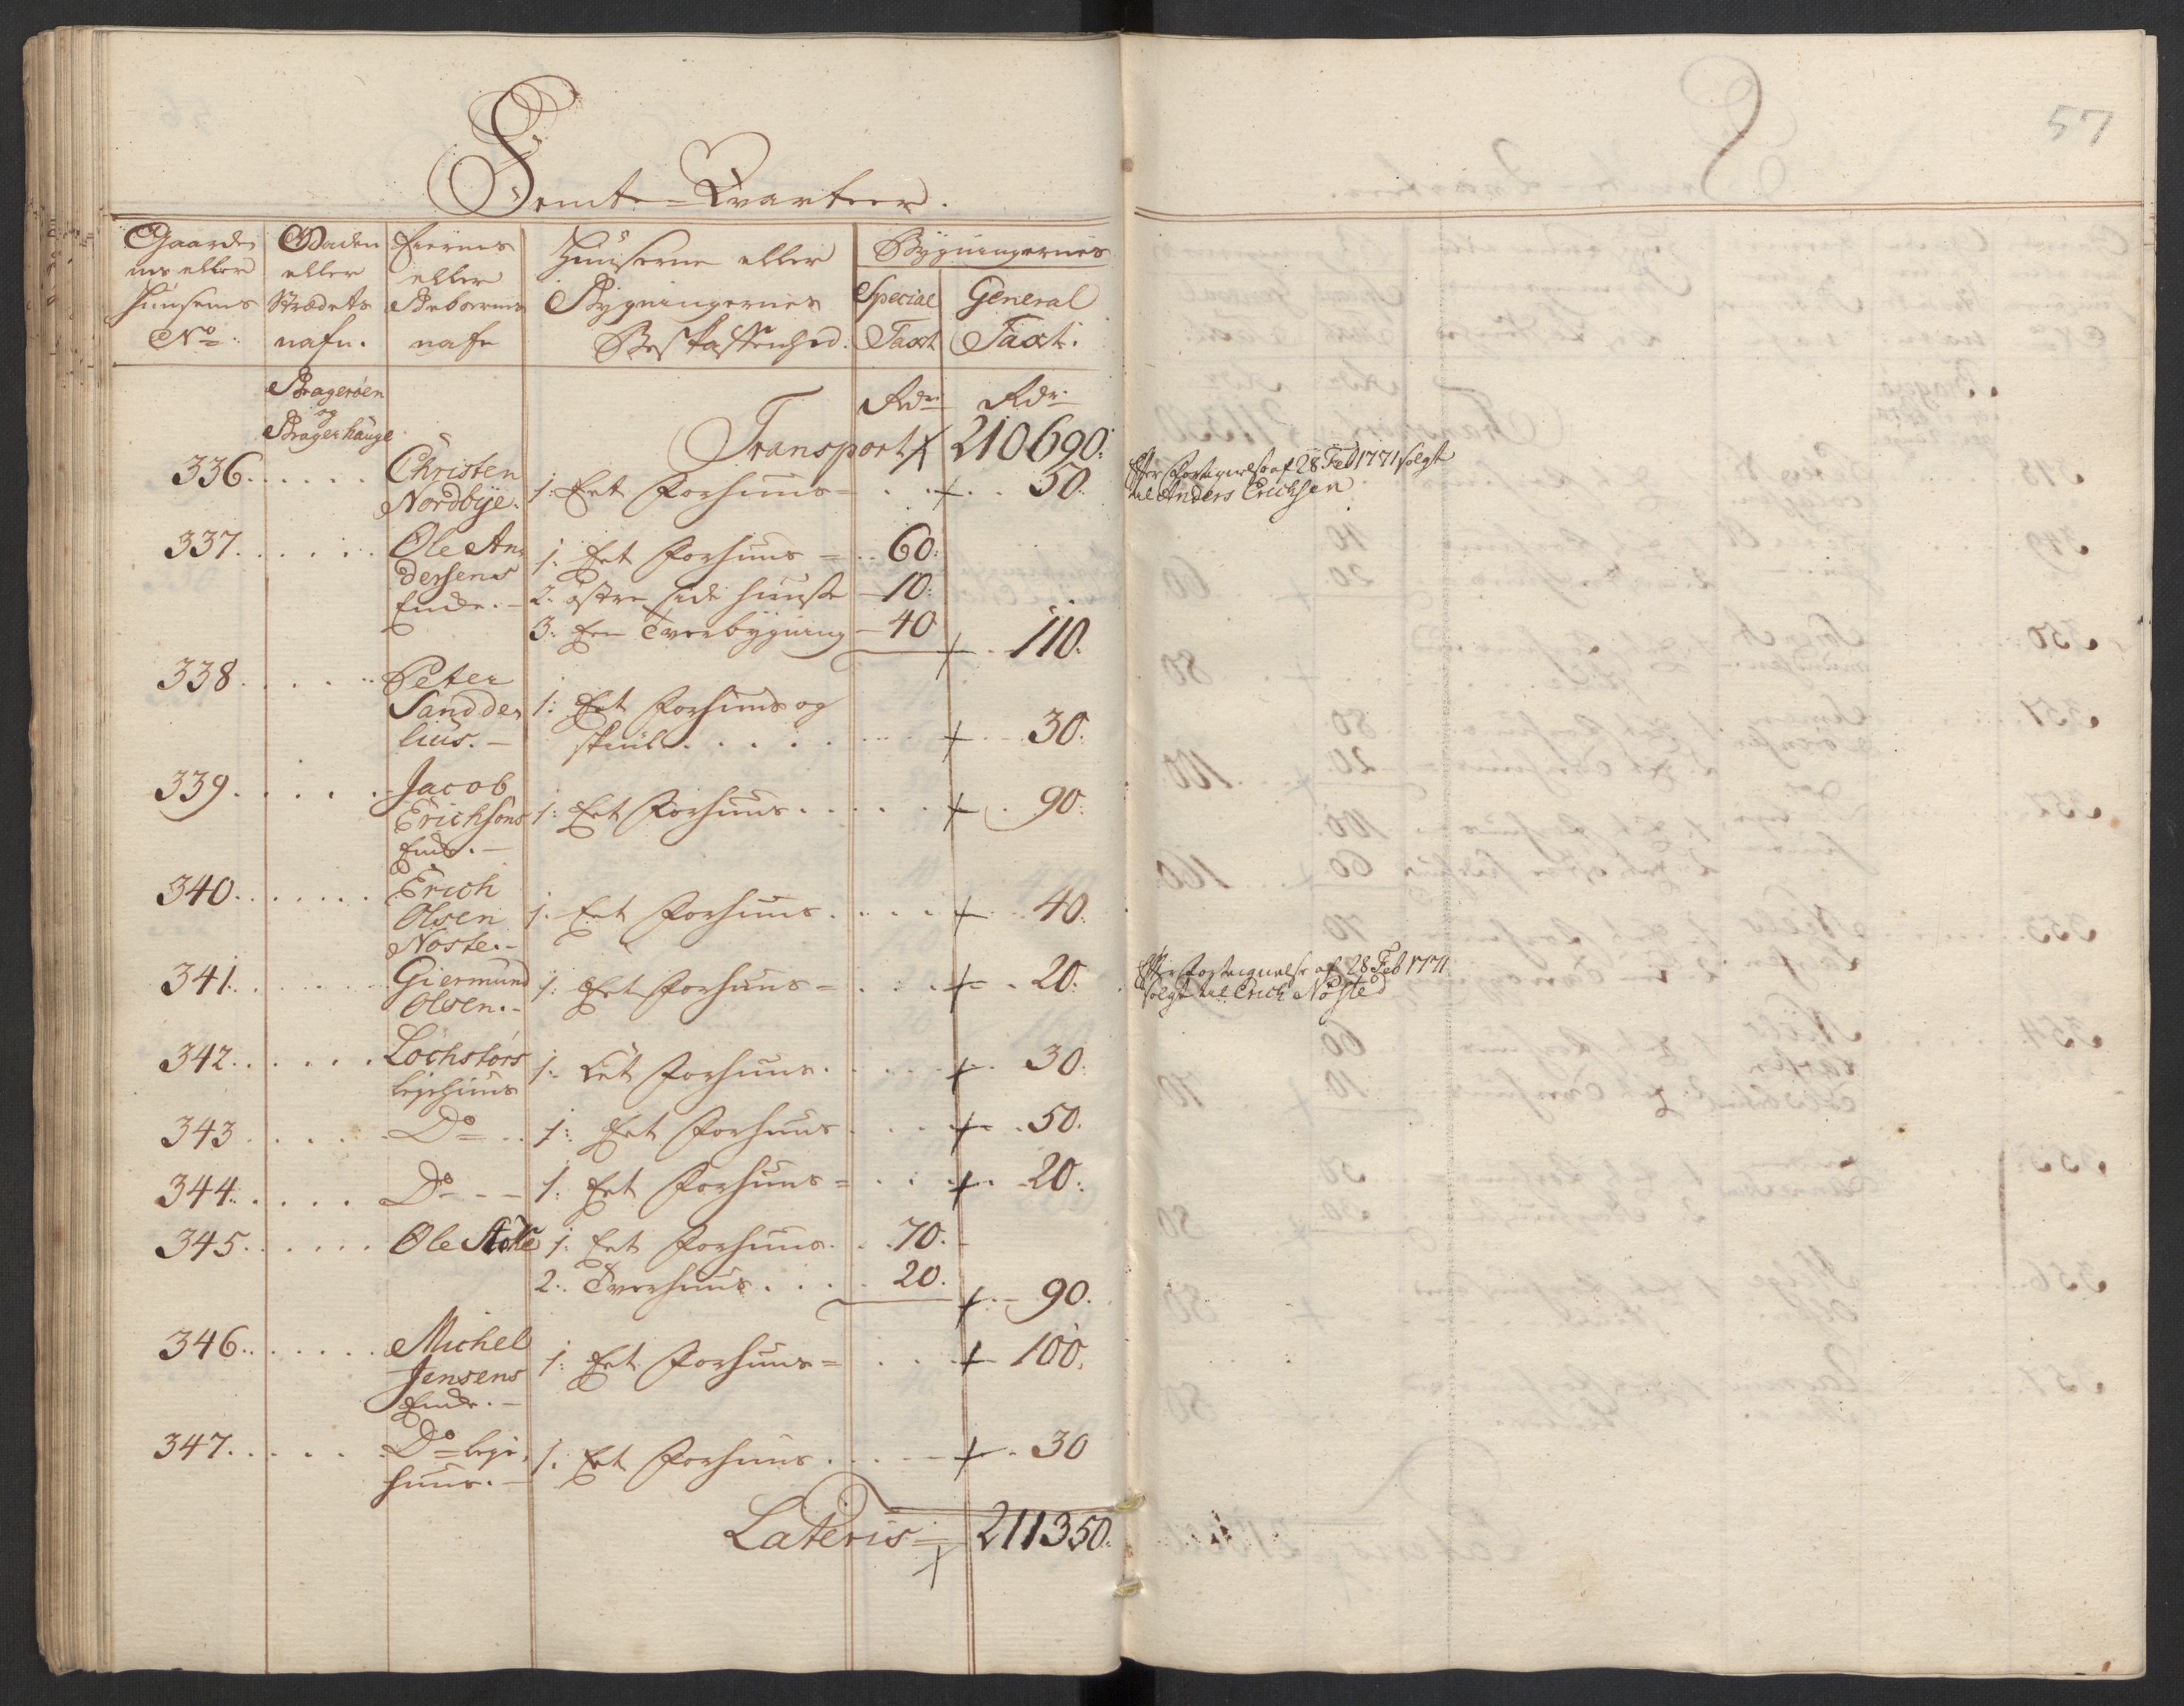 Femte-Qvarteer.
Gaarde
nes eller
Huusenes
No:
Gaden
eller
Strædets
nafn.
Eiernes
eller
Beboernes
nafn
Huuserne eller
Bygningernes
Beskaffenhed.
Bygningernes
Special
Taxt
General
Taxt.
Bragerøen
og
Bragerhauge
Rdr
Rdr
Transport 210690:
336. Christen
Nordbÿe. 1: Eet Forhuus 50.
337. Ole An-
dersens
Enke. 1: Eet Forhuus 60:
2. østre side huuse 10:
3: Een Tverbygning 40 110.
338. Peter
Sandde-
lius. 1: Eet Forhuus og
skiul 30.
339. Jacob
Erichsøns
Enke. 1: Eet Forhuus 90:
340. Erich
Olsen
Nøste. 1. Eet Forhuus. 40:
341. Giermund
Olsen. 1: Eet Forhuus 20:
342. Lochstørs
leyehuus 1: Eet Forhuus. 30:
343 Do 1: Eet Forhuus 50.
344. Do 1: Eet Forhuus 20:
345. Ole 1: Eet Forhuus. 70.
2. Tverhuus. 20. 90.
346. Michel
Jensens
Enke. 1: Eet Forhuus 100.
347. Do leye-
huus. 1. Eet Forhuus 30
Lateris 211350.
57
Efter Forteignelse af 28 Feb 1771 solgt
til Anders Erichsen
Efter Forteignelse af 28 Feb 1771
solgt til Erich Nøsted